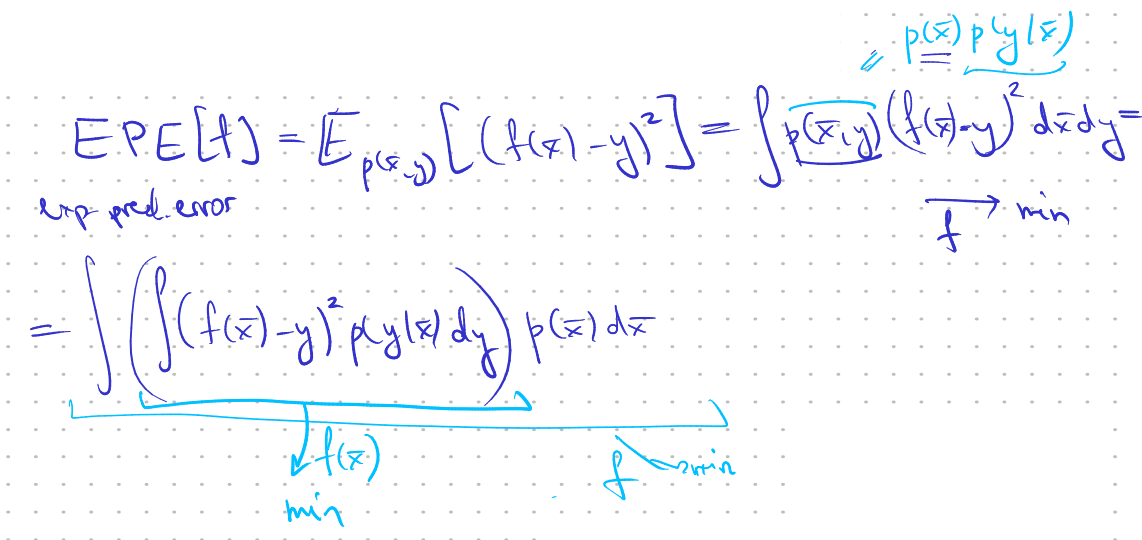 = p(x̄) p(y|x̄)
EPE[f] = E_p(x̄,y) [(f(x̄) - y)²] = ∫ p(x̄,y) (f(x̄)-y)² dx̄dy =
exp. pred. error
→ min
f
= ∫ (∫ (f(x̄) - y)² p(y|x̄) dy) p(x̄) dx̄
f(x̄)
min
f → min